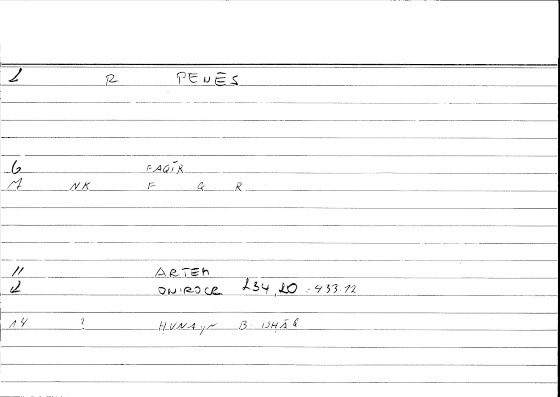 1 R PENĒS
6 FAQĪR
7 NK F Q R
11 ARTEM
12 ONIROCR 234,20 = 433.12
14 ? HUNAYN B. ISHĀQ